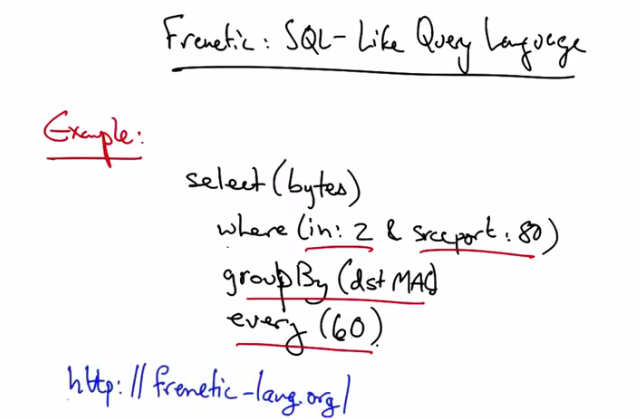 Frenetic: SQL-Like Query Language
Example:
select (bytes)
where (in: 2 & srcport: 80)
groupBy (dstMAC)
every (60)
http://frenetic-lang.org/